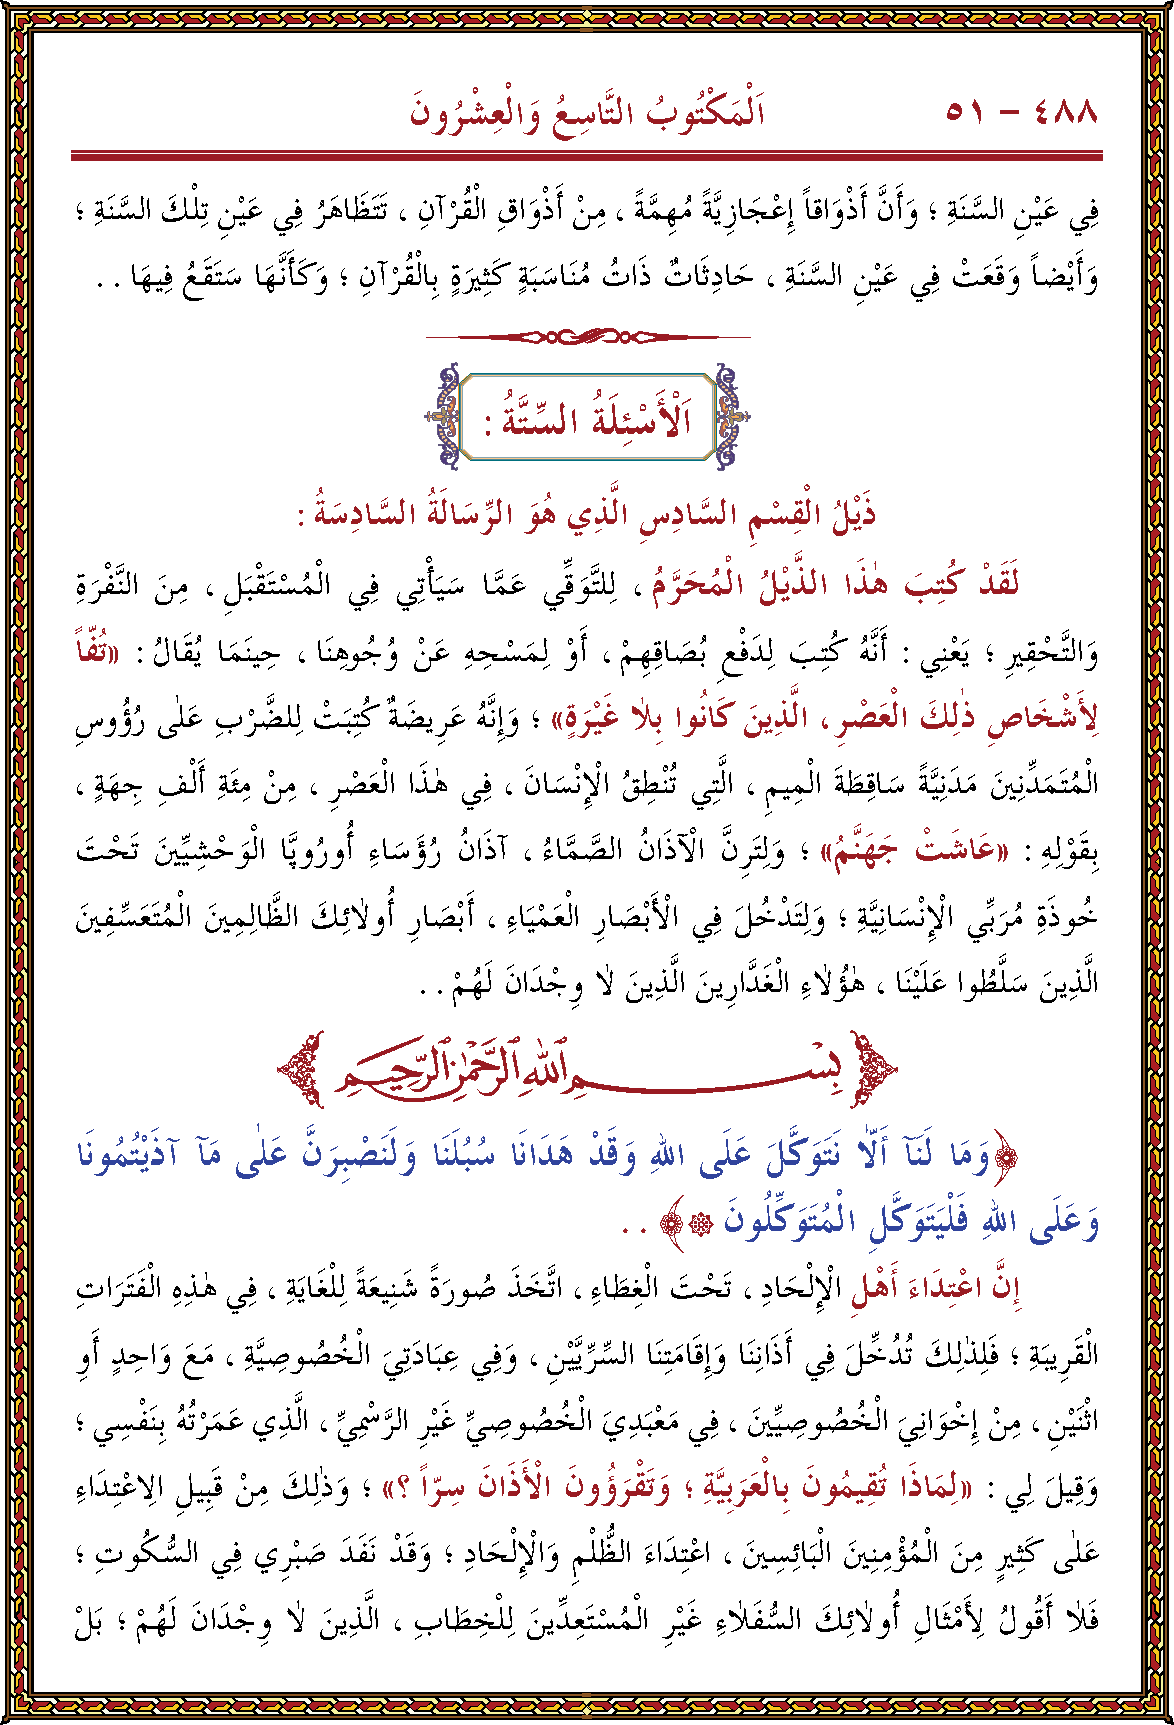 ٤٨٨ - ٥١
اَلْمَكْتُوبُ التَّاسِعُ وَالْعِشْرُونَ
فِي عَيْنِ السَّنَةِ ؛ وَأَنَّ أَذْوَاقاً إِعْجَازِيَّةً مُهِمَّةً ، مِنْ أَذْوَاقِ الْقُرْآنِ ، تَتَظَاهَرُ فِي عَيْنِ تِلْكَ السَّنَةِ ؛
وَأَيْضاً وَقَعَتْ فِي عَيْنِ السَّنَةِ ، حَادِثَاتٌ ذَاتُ مُنَاسَبَةٍ كَثِيرَةٍ بِالْقُرْآنِ ؛ وَكَأَنَّهَا سَتَقَعُ فِيهَا . .
اَلْأَسْئِلَةُ السِّتَّةُ :
ذَيْلُ الْقِسْمِ السَّادِسِ الَّذِي هُوَ الرِّسَالَةُ السَّادِسَةُ :
لَقَدْ كُتِبَ هٰذَا الذَّيْلُ الْمُحَرَّمُ ، لِلتَّوَقِّي عَمَّا سَيَأْتِي فِي الْمُسْتَقْبَلِ ، مِنَ النَّفْرَةِ
وَالتَّحْقِيرِ ؛ يَعْنِي : أَنَّهُ كُتِبَ لِدَفْعِ بُصَاقِهِمْ ، أَوْ لِمَسْحِهِ عَنْ وُجُوهِنَا ، حِينَمَا يُقَالُ : «تُفّاً
لِأَشْخَاصِ ذٰلِكَ الْعَصْرِ ، الَّذِينَ كَانُوا بِلَا غَيْرَةٍ» ؛ وَإِنَّهُ عَرِيضَةٌ كُتِبَتْ لِلضَّرْبِ عَلٰى رُؤُوسِ
الْمُتَمَدِّنِينَ مَدَنِيَّةً سَاقِطَةَ الْمِيمِ ، الَّتِي تُنْطِقُ الْإِنْسَانَ ، فِي هٰذَا الْعَصْرِ ، مِنْ مِئَةِ أَلْفِ جِهَةٍ ،
بِقَوْلِهِ : «عَاشَتْ جَهَنَّمُ» ؛ وَلِتَرِنَّ الْآذَانُ الصَّمَّاءُ ، آذَانُ رُؤَسَاءِ أُورُوپَّا الْوَحْشِيِّينَ تَحْتَ
خُوذَةِ مُرَبِّي الْإِنْسَانِيَّةِ ؛ وَلِتَدْخُلَ فِي الْأَبْصَارِ الْعَمْيَاءِ ، أَبْصَارِ أُولٰئِكَ الظَّالِمِينَ الْمُتَعَسِّفِينَ
الَّذِينَ سَلَّطُوا عَلَيْنَا ، هٰؤُلَاءِ الْغَدَّارِينَ الَّذِينَ لَا وِجْدَانَ لَهُمْ . .
بِسْمِ اللّٰهِ الرَّحْمٰنِ الرَّحِيمِ
﴿وَمَا لَنَآ أَلَّا نَتَوَكَّلَ عَلَى اللهِ وَقَدْ هَدَانَا سُبُلَنَا وَلَنَصْبِرَنَّ عَلٰى مَآ آذَيْتُمُونَا
وَعَلَى اللهِ فَلْيَتَوَكَّلِ الْمُتَوَكِّلُونَ ۞﴾ . .
إِنَّ اعْتِدَاءَ أَهْلِ الْإِلْحَادِ ، تَحْتَ الْغِطَاءِ ، اتَّخَذَ صُورَةً شَنِيعَةً لِلْغَايَةِ ، فِي هٰذِهِ الْفَتَرَاتِ
الْقَرِيبَةِ ؛ فَلِذٰلِكَ تُدُخِّلَ فِي أَذَانِنَا وَإِقَامَتِنَا السِّرِّيَّيْنِ ، وَفِي عِبَادَتِيَ الْخُصُوصِيَّةِ ، مَعَ وَاحِدٍ أَوِ
اثْنَيْنِ ، مِنْ إِخْوَانِيَ الْخُصُوصِيِّينَ ، فِي مَعْبَدِيَ الْخُصُوصِيِّ غَيْرِ الرَّسْمِيِّ ، الَّذِي عَمَرْتُهُ بِنَفْسِي ؛
وَقِيلَ لِي : «لِمَاذَا تُقِيمُونَ بِالْعَرَبِيَّةِ ؛ وَتَقْرَؤُونَ الْأَذَانَ سِرّاً ؟» ؛ وَذٰلِكَ مِنْ قَبِيلِ الِاعْتِدَاءِ
عَلٰى كَثِيرٍ مِنَ الْمُؤْمِنِينَ الْبَائِسِينَ ، اعْتِدَاءَ الظُّلْمِ وَالْإِلْحَادِ ؛ وَقَدْ نَفَدَ صَبْرِي فِي السُّكُوتِ ؛
فَلَا أَقُولُ لِأَمْثَالِ أُولٰئِكَ السُّفَلَاءِ غَيْرِ الْمُسْتَعِدِّينَ لِلْخِطَابِ ، الَّذِينَ لَا وِجْدَانَ لَهُمْ ؛ بَلْ